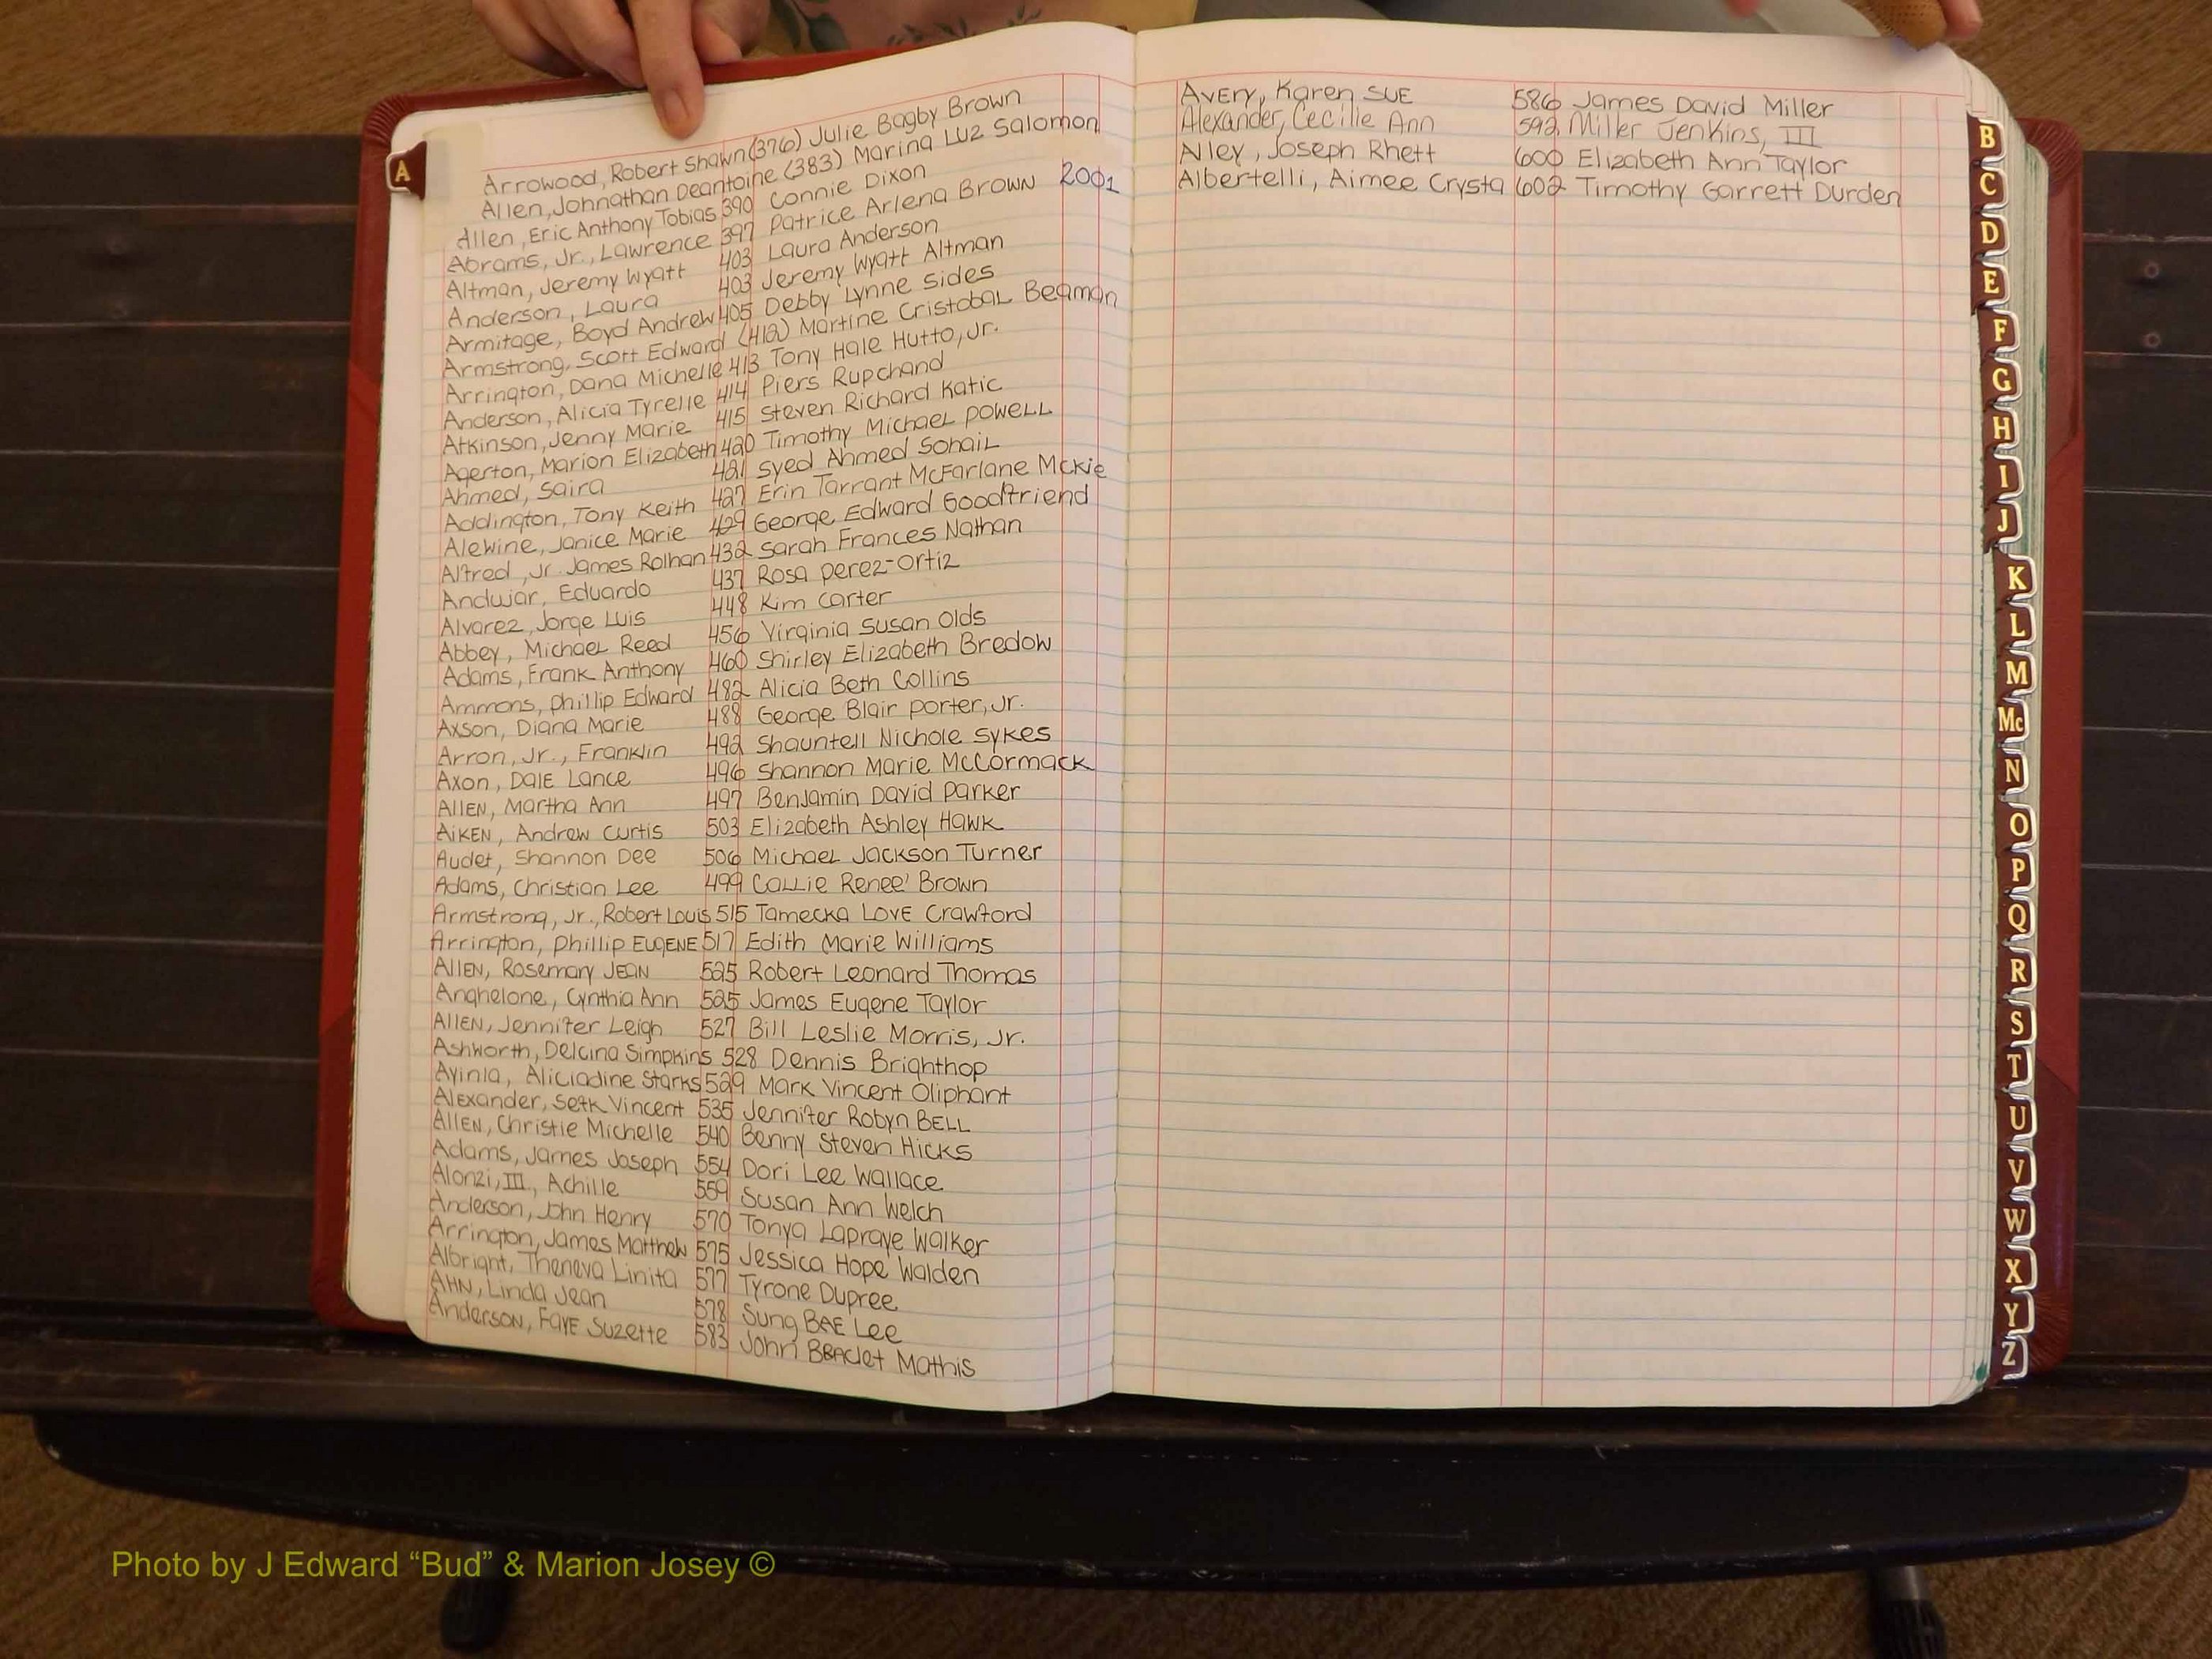 A
Arrowood, Robert Shawn (376) Julie Bagby Brown
Allen, Johnathan Deantoine (383) Marina Luz Salomon
Allen, Eric Anthony Tobias 390 Connie Dixon
Abrams, Jr., Lawrence 397 Patrice Arlena Brown 2001
Altman, Jeremy Wyatt 403 Laura Anderson
Anderson, Laura 403 Jeremy Wyatt Altman
Armitage, Boyd Andrew 405 Debby Lynne Sides
Armstrong, Scott Edward (412) Martine Cristobal Beaman
Arrington, Dana Michelle 413 Tony Hale Hutto, Jr.
Anderson, Alicia Tyrelle 414 Piers Rupchand
Atkinson, Jenny Marie 415 Steven Richard Katic
Agerton, Marion Elizabeth 420 Timothy Michael Powell
Ahmed, Saira 421 Syed Ahmed Sohail
Addington, Tony Keith 427 Erin Tarrant McFarlane Mckie
Alewine, Janice Marie 429 George Edward Goodfriend
Alfred, Jr. James Rolhan 432 Sarah Frances Nathan
Andujar, Eduardo 437 Rosa perez-Ortiz
Alvarez, Jorge Luis 448 Kim Carter
Abbey, Michael Reed 456 Virginia Susan Olds
Adams, Frank Anthony 460 Shirley Elizabeth Bredow
Ammons, Phillip Edward 482 Alicia Beth Collins
Axson, Diana Marie 488 George Blair Porter, Jr.
Arron, Jr., Franklin 492 Shauntell Nichole Sykes
Axon, Dale Lance 496 Shannon Marie McCormack
Allen, Martha Ann 497 Benjamin David Parker
Aiken, Andrew Curtis 503 Elizabeth Ashley Hawk
Audet, Shannon Dee 506 Michael Jackson Turner
Adams, Christian Lee 499 Callie Renee' Brown
Armstrong, Jr., Robert Louis 515 Tamecka Love Crawford
Arrington, Phillip Eugene 517 Edith Marie Williams
Allen, Rosemary Jean 525 Robert Leonard Thomas
Anghelone, Cynthia Ann 525 James Eugene Taylor
Allen, Jennifer Leigh 527 Bill Leslie Morris, Jr.
Ashworth, Delcina Simpkins 528 Dennis Brighthop
Ayinla, Aliciadine Starks 529 Mark Vincent Oliphant
Alexander, Seth Vincent 535 Jennifer Robyn Bell
Allen, Christie Michelle 540 Benny Steven Hicks
Adams, James Joseph 554 Dori Lee Wallace
Alonzi, III, Achille 559 Susan Ann Welch
Anderson, John Henry 570 Tonya Lapraye Walker
Arrington, James Matthew 575 Jessica Hope Walden
Albright, Theneva Linita 577 Tyrone Dupree
Ahn, Linda Jean 578 Sung Bae Lee
Anderson, Faye Suzette 583 John Mathis
Avery, Karen Sue 586 James David Miller
Alexander, Cecilie Ann 592 Miller Jenkins, III
Alley, Joseph Rhett 600 Elizabeth Ann Taylor
Albertelli, Aimee Crysta 602 Timothy Garrett Durden
B
C
D
E
F
G
H
I
J
K
L
M
Mc
N
O
P
Q
R
S
T
U
V
W
X
Y
Z
Photo by J Edward “Bud” & Marion Josey ©